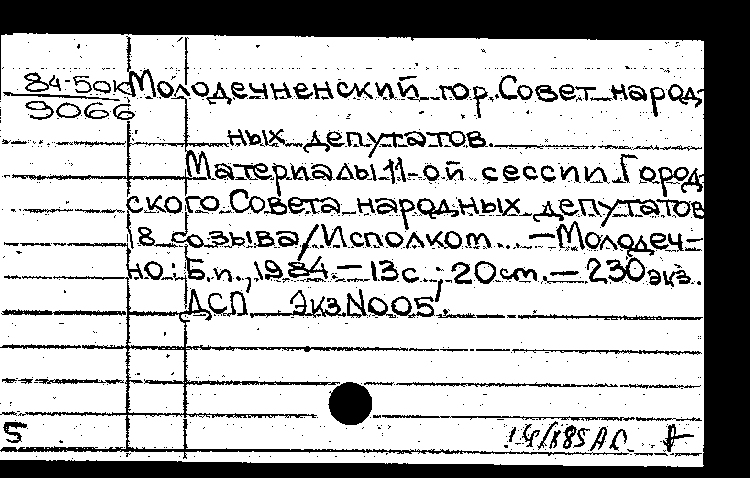 84-50к Молодечненский гор. Совет народ-
9066
ных депутатов.
Материалы 11-ой сессии Город-
ского Совета народных депутатов
18 созыва/Исполком... —Молодеч-
но: Б.и., 1984.—13с.; 20см.—230экз.
ДСП Экз.N005.
5